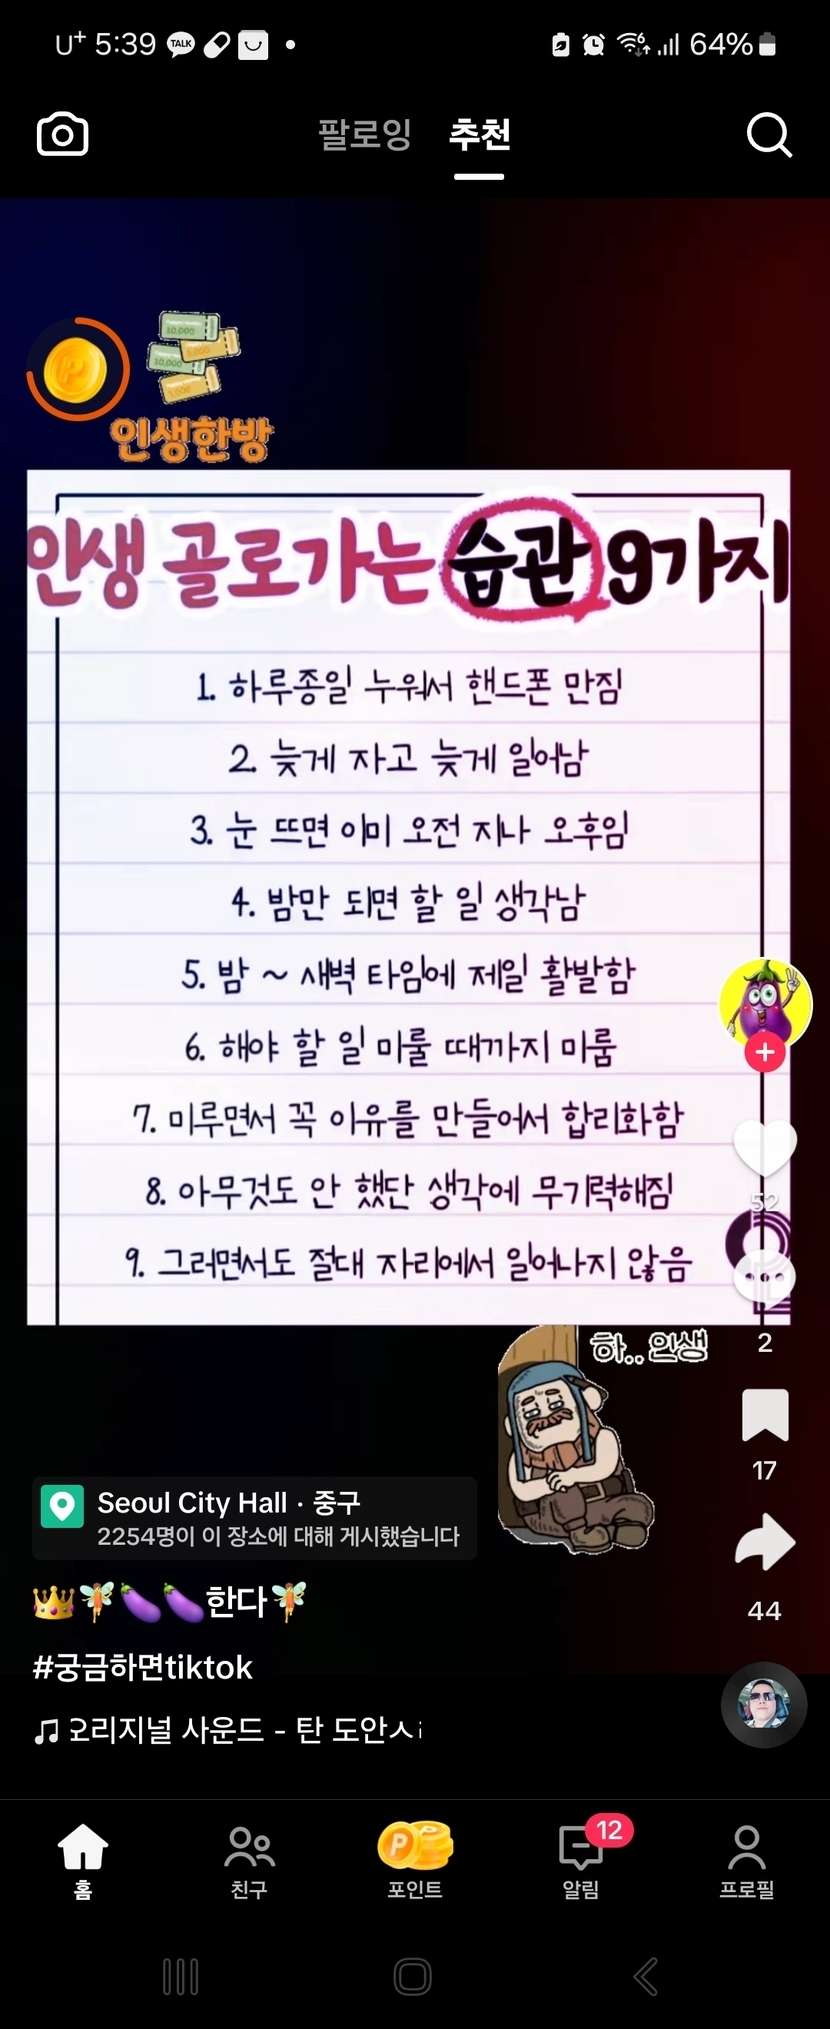 U+ 5:39 TALK 64%
팔로잉 추천
10,000
10,000
인생한방
인생 골로가는 습관 9가지
1. 하루종일 누워서 핸드폰 만짐
2. 늦게 자고 늦게 일어남
3. 눈 뜨면 이미 오전 지나 오후임
4. 밤만 되면 할 일 생각남
5. 밤 ~ 새벽 타임에 제일 활발함
6. 해야 할 일 미룰 때까지 미룸
7. 미루면서 꼭 이유를 만들어서 합리화함
8. 아무것도 안 했단 생각에 무기력해짐
9. 그러면서도 절대 자리에서 일어나지 않음
52
하.. 인생
2
17
44
Seoul City Hall · 중구
2254명이 이 장소에 대해 게시했습니다
👑🧚🍆🍆한다🧚
#궁금하면tiktok
오리지널 사운드 - 탄 도안
12
홈 친구 포인트 알림 프로필